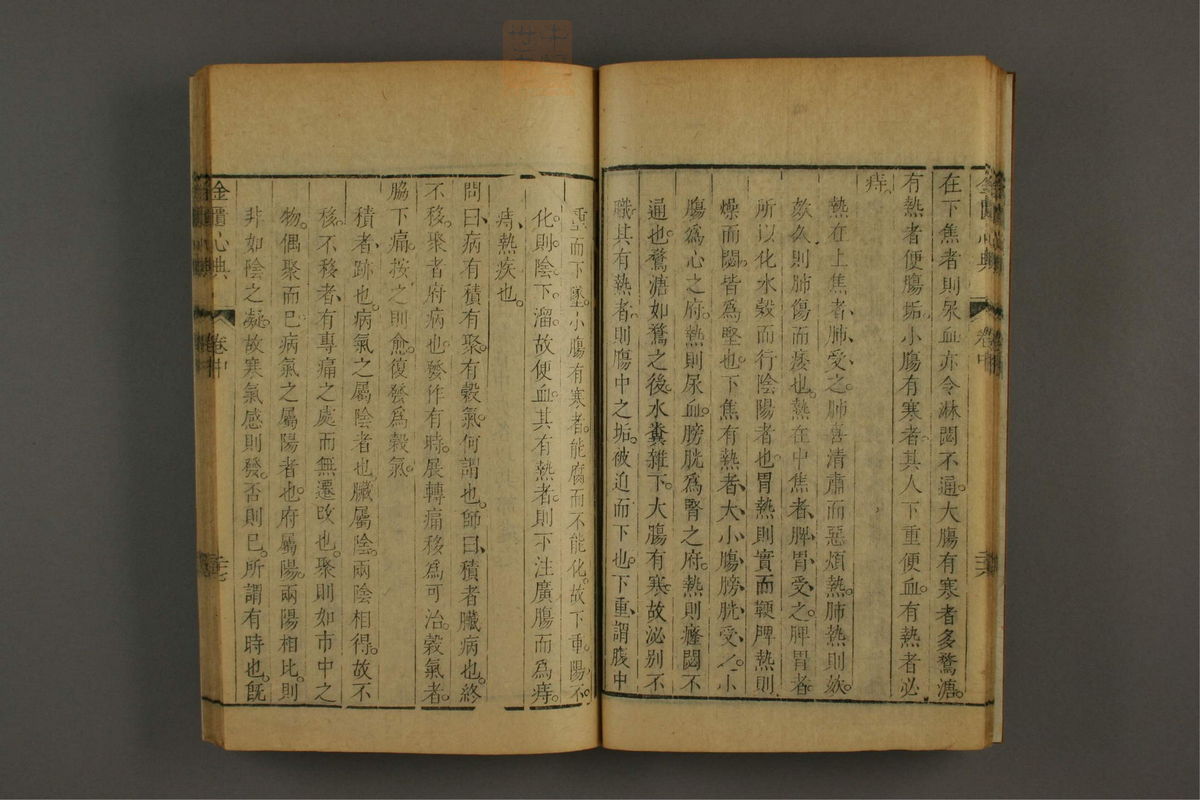 在下焦者則尿血亦令淋閟不通。大腸有寒者多鶩溏。
有熱者便腸垢。小腸有寒者其人下重便血。有熱者必
痔。
熱在上焦者、肺受之。肺喜清肅而惡煩熱。肺熱則欬。
欬久則肺傷而痿也。熱在中焦者、脾胃受之。脾胃者
所以化水穀而行陰陽者也。胃熱則實而鞕。脾熱則
燥而閟。皆爲堅也。下焦有熱者、大小腸膀胱受之。小
腸爲心之府。熱則尿血。膀胱爲腎之府。熱則癃閟不
通也。鶩溏如鶩之後。水糞雜下。大腸有寒、故泌别不
職。其有熱者、則腸中之垢。被迫而下也。下重、謂腹中
金匱心典
卷中
二六
重而下墜。小腸有寒者。能腐而不能化。故下重。陽不
化。則陰下溜。故便血。其有熱者。則下注廣腸而爲痔。
痔、熱疾也。
問曰、病有積有聚。有穀氣。何謂也。師曰、積者臟病也。終
不移。聚者府病也。發作有時。展轉痛移爲可治。穀氣者。
脇下痛。按之則愈。復發爲穀氣。
積者、跡也。病氣之屬陰者也。臟屬陰。兩陰相得。故不
移。不移者、有專痛之處而無遷改也。聚則如市中之
物。偶聚而已。病氣之屬陽者也。府屬陽。兩陽相比。則
非如陰之凝。故寒氣感則發。否則已。所謂有時也。旣
金匱心典
卷中
二七